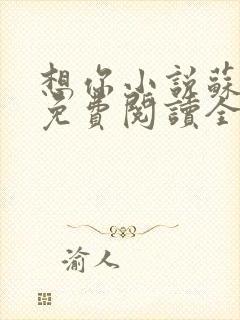 想你小説蘇
免費閱讀全
渝人